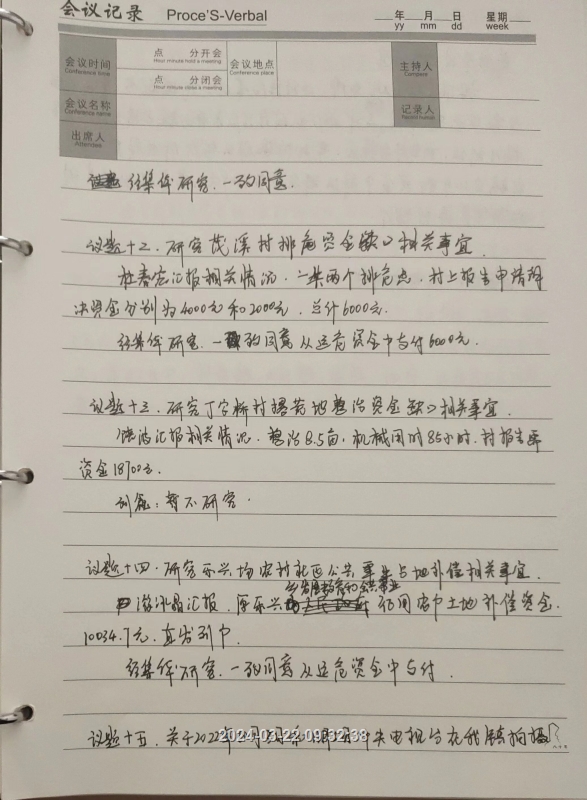 会议记录 Proce'S-Verbal
年 月 日 星期
yy mm dd week
会议时间 点 分开会 会议地点 主持人
Conference time Hour minute hold a meeting Conference place
点 分闭会
Hour minute close a meeting
会议名称 记录人
Conference name
出席人
Attendee
经集体研究,一致同意.
议题十二.研究茂溪村排危资金缺口相关事宜.
杜春宏汇报相关情况.一共两个排危点.村上报告申请解
决资金分别为4000元和2000元.总计6000元.
经集体研究.一致同意从运危资金中支付6000元.
议题十三.研究丁字桥村撂荒地整治资金缺口相关事宜.
汇报相关情况.整治8.5亩,机械用时85小时.村报告要
资金18700元.
暂不研究.
议题十四.研究乐兴场农村社区公共事业占地补偿相关事宜.
汇报.原乐兴 占用农户土地补偿资金
10034.7元.直发到户
经集体研究.一致同意从运危资金中支付.
议题十五.关于2022年 中央电视台在我镇拍摄
2024-03-22 09:32:38